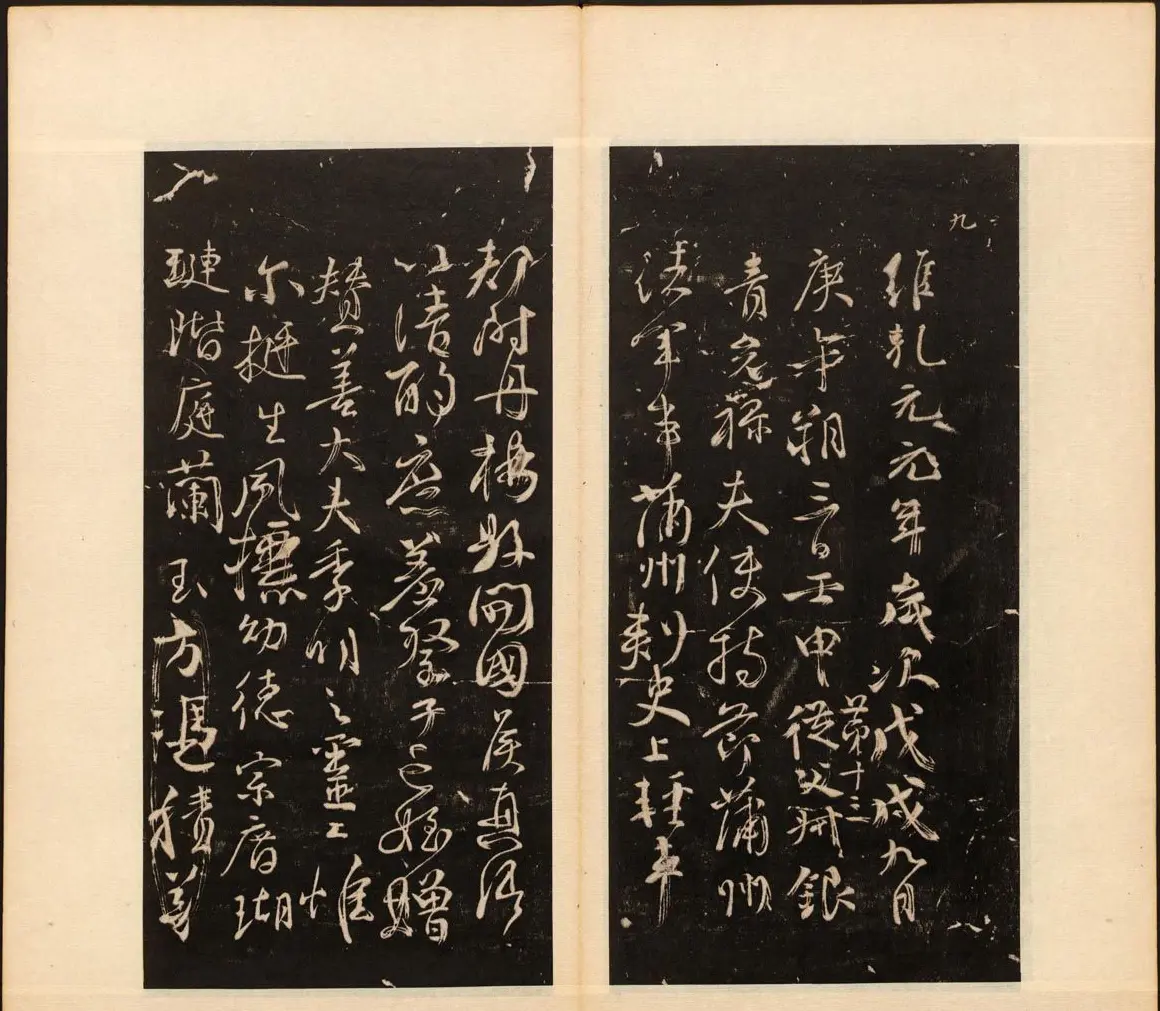 九
維乾元元年歲次戊戌九月
第十三
庚午朔三日壬申從父銀
青光祿夫使持節蒲州
諸軍事蒲州刺史上輕車
都尉丹楊縣開國侯真卿
以清酌庶羞祭于亡姪贈
贊善大夫季明之靈曰惟
尔挺生夙標幼德宗廟瑚
璉階庭蘭玉方憑積善